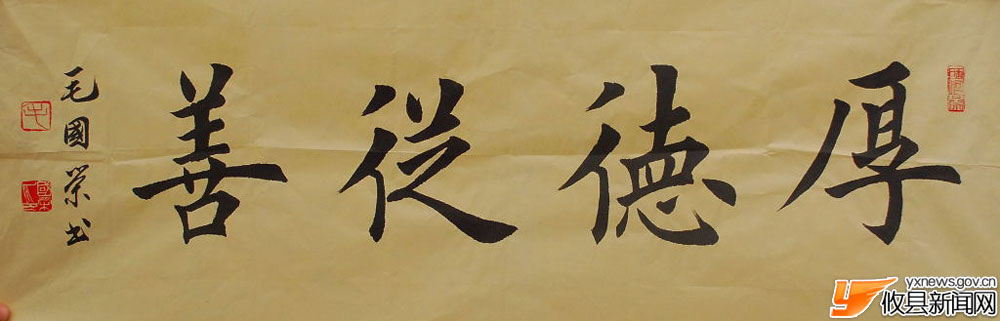 厚德從善
毛國榮书
yxnews.gov.cn
攸县新闻网